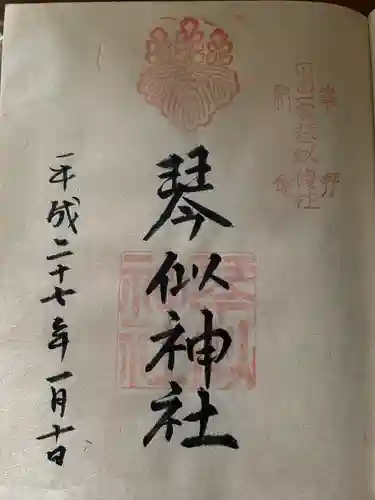 奉拝
琴似神社
平成二十七年一月十日